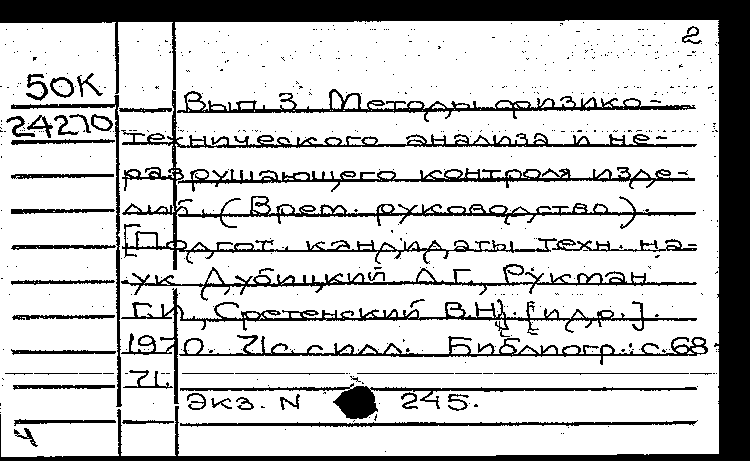 2
50К
24270
Вып. 3. Методы физико-
технического анализа и не-
разрушающего контроля изде-
лий. (Врем. руководство).
[Подгот. кандидаты техн. на-
ук Дубицкий Л.Г., Рукман
Г.И., Сретенский В.Н]. [и др.].
1970. 71с. с илл. Библиогр.: с. 68-
71.
Экз. N 245.
4